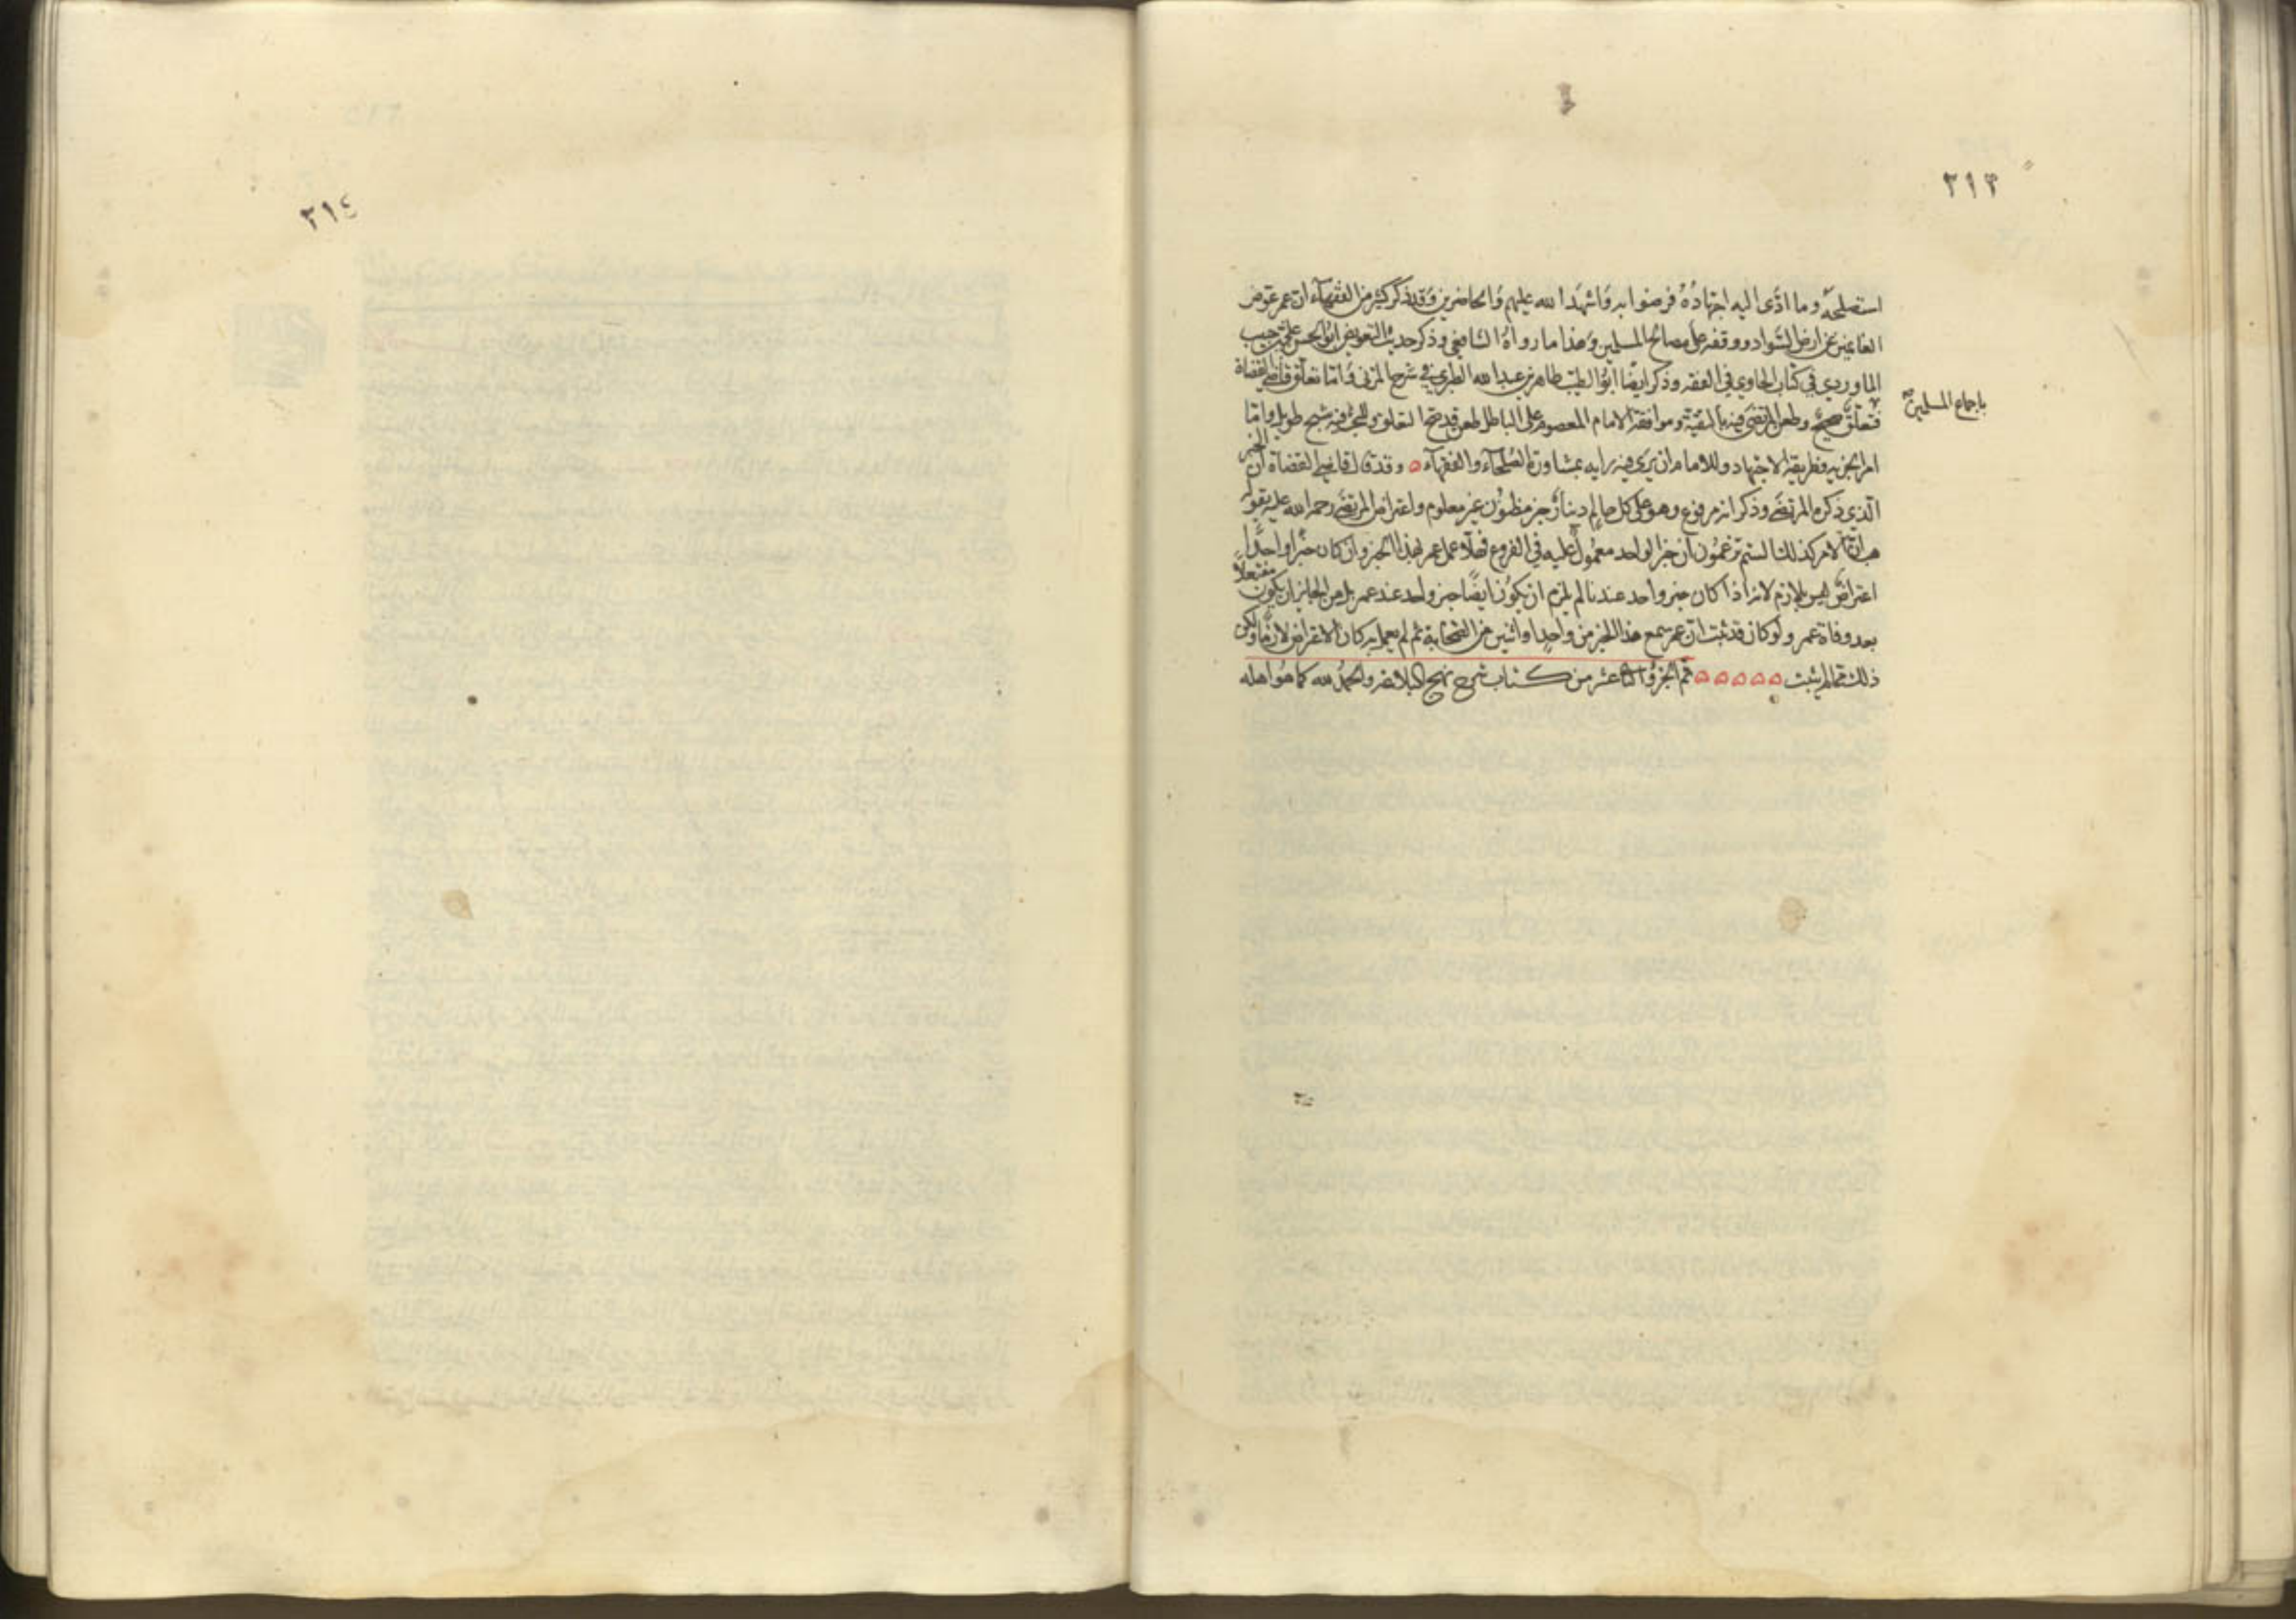 ٣١٣
استصلحه وما ادّى اليه اجتهاده فرضوا به واشهد الله عليهم والحاضرين وقد ذكر كثير من الفقهاء ان عمر عوض
الغانمين عن ارض السواد ووقفه على مصالح المسلمين وهذا ما رواه الشافعي وذكر حديث التعويض ابو الحسن علي بن حبيب
الماوردي في كتاب الحاوي في الفقه وذكر ايضا ابو الطيب طاهر بن عبد الله الطبري في شرح المزني واما تعلق قاضي القضاة
باجماع المسلمين
فتعلق صحيح وطعن المرتضى فيه بالتقية وموافقة الامام المعصوم على الباطل طعن قدح التعلق وللبحث فيه شبح طويل واما
امر الجزية فطريقه الاجتهاد وللامام ان يرى فيه رايه بمشاورة الصلحاء والفقهاء ٥ وقد قال قاضي القضاة ان الخبر
الذي ذكره المرتضى وذكر انه مرفوع وهو على كل حالم دينار خبر مظنون غير معلوم واعتراض المرتضى رحمه الله عليه بقوله
هب ان الامر كذلك الستم تزعمون ان خبر الواحد معمول عليه في الفروع فهلا عمل عمر بهذا الخبر وان كان خبرا واحدا
اعتراض ليس بلازم لانه اذا كان خبر واحد عندنا لم يلزم ان يكون ايضا خبر واحد عند عمر بل من الجايز ان يكون مفتعلا
بعد وفاة عمر ولو كان قد ثبت ان عمر سمع هذا الخبر من واحد او اثنين من الصحابة ثم لم يعمل به كان الاعتراض لازما ولكن
ذلك مما لم يثبت ٥ ٥ ٥ ٥ ٥ تم الجزؤ عشر من كتاب شرح نهج البلاغه والحمد لله كما هو اهله
٣١٤